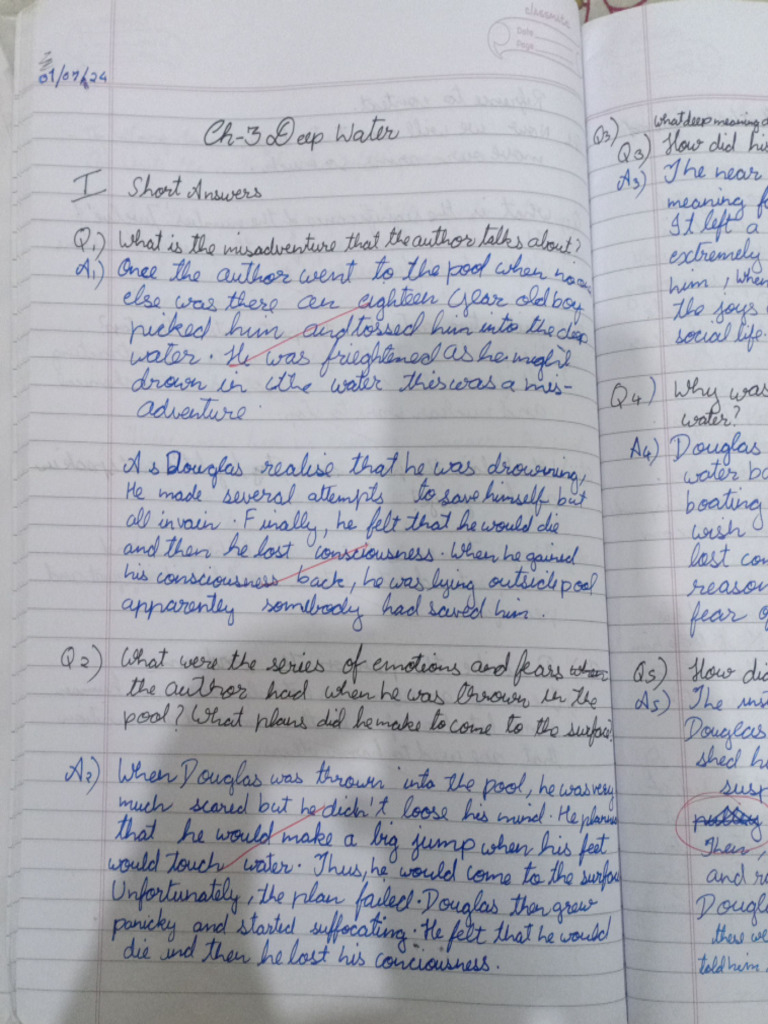 classmate
Date
Page
01/07/24
Ch-3 Deep Water
I Short Answers
Q1) What is the misadventure that the author talks about?
A1) Once the author went to the pool when no one
else was there an eighteen year old boy
picked him and tossed him into the deep
water. He was frieghtened as he might
drown in the water this was a mis-
adventure.
As Douglas realise that he was drowning,
He made several attempts to save himself but
all in vain. Finally, he felt that he would die
and then he lost consciousness. When he gained
his consciousness back, he was lying outside pool
apparently somebody had saved him.
Q2) What were the series of emotions and fears when
the author had when he was thrown in the
pool? What plans did he make to come to the surface?
A2) When Douglas was thrown into the pool, he was very
much scared but he didn't loose his mind. He planned
that he would make a big jump when his feet
would touch water. Thus, he would come to the surface
Unfortunately, the plan failed. Douglas then grew
panicky and started suffocating. He felt that he would
die and then he lost his conciousness.
Q3) What deep meaning d
Q3) How did his
A3) The near
meaning fo
It left a
extremely
him, when
the joys
social life.
Q4) Why was
water?
A4) Douglas
water ba
boating
wish
lost con
reason
fear of
Q5) How did
A5) The inst
Douglas
shed h
susp
Then,
and r
Dougla
there we
told him